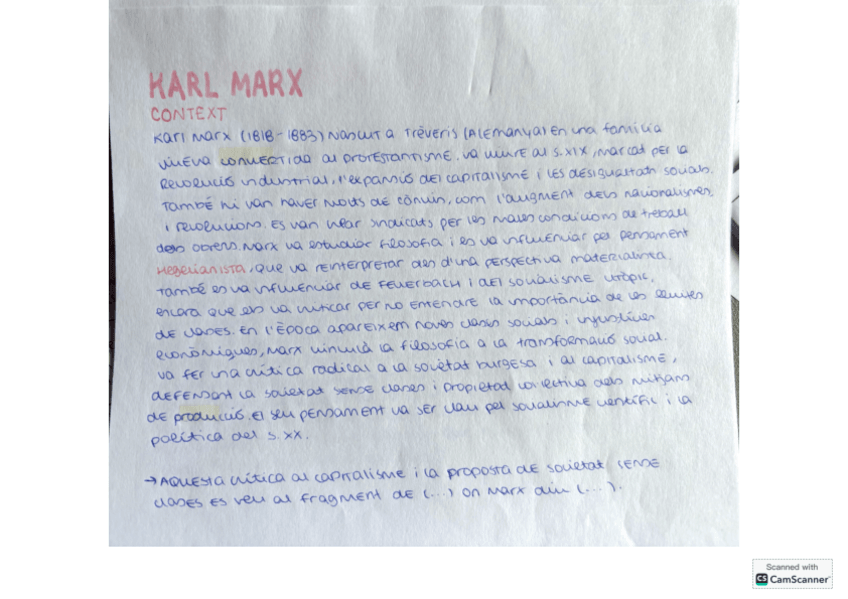 KARL MARX
CONTEXT
Karl Marx (1818-1883) Nascut a Trèveris (Alemanya) En una família
jueva convertida al protestantisme. va viure al s.XIX, marcat per la
Revolució industrial, l'expansió del capitalisme i les desigualtats socials.
També hi van haver molts de canvis, com l'augment dels nacionalismes
i revolucions. Es van crear sindicats per les males condicions de treball
dels obrers. Marx va estudiar filosofia i es va influenciar pel pensament
Hegelianista, que va reinterpretar des d'una perspectiva materialista.
També es va influenciar de Feuerbach i del socialisme utòpic,
encara que els va criticar per no entendre la importància de les lluites
de classes. En l'Època apareixen noves classes socials i injustícies
econòmiques, Marx vinculà la filosofia a la transformació social.
va fer una crítica radical a la societat burgesa i al capitalisme,
defensant la societat sense classes i propietat col·lectiva dels mitjans
de producció. El seu pensament va ser clau pel socialisme científic i la
política del s.XX.
→ Aquesta crítica al capitalisme i la proposta de societat sense
classes es veu al fragment de (...) on Marx diu (...).
Scanned with
CS CamScanner